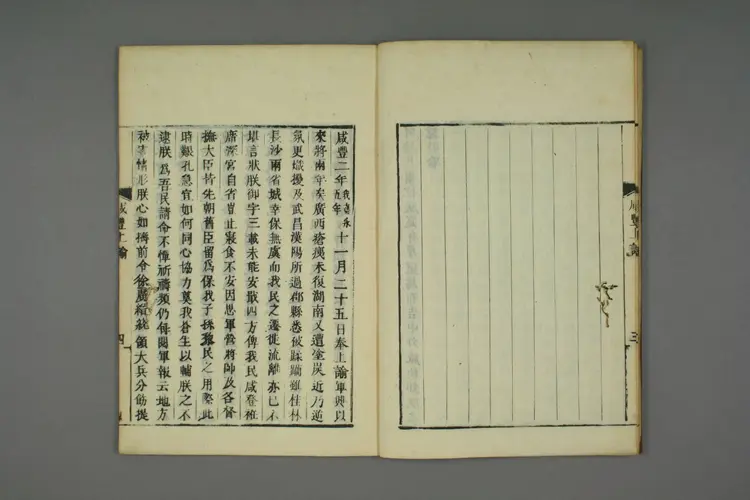 咸豐上諭
三
咸豐二年我嘉永五年十一月二十五日奉上諭軍興以
來將兩年矣廣西瘡痍未復湖南又遭塗炭近乃逆
氛更熾擾及武昌漢陽所過郡縣悉被蹂躪雖桂林
長沙兩省城幸保無虞而我民之遷徙流離亦已不
堪言狀朕御宇三載未能安戢四方俾我民咸登衽
席深宮自省豈止寢食不安因思軍營將帥及各督
撫大臣皆先朝舊臣留爲保我子孫黎民之用際此
時艱孔急宜如何同心協力奠我蒼生以輔朕之不
逮朕爲吾民請命不憚祈禱頻仍每閱軍報云地方
被害情形朕心如擣前令徐廣縉統領大兵分飭提
咸豐上諭
四